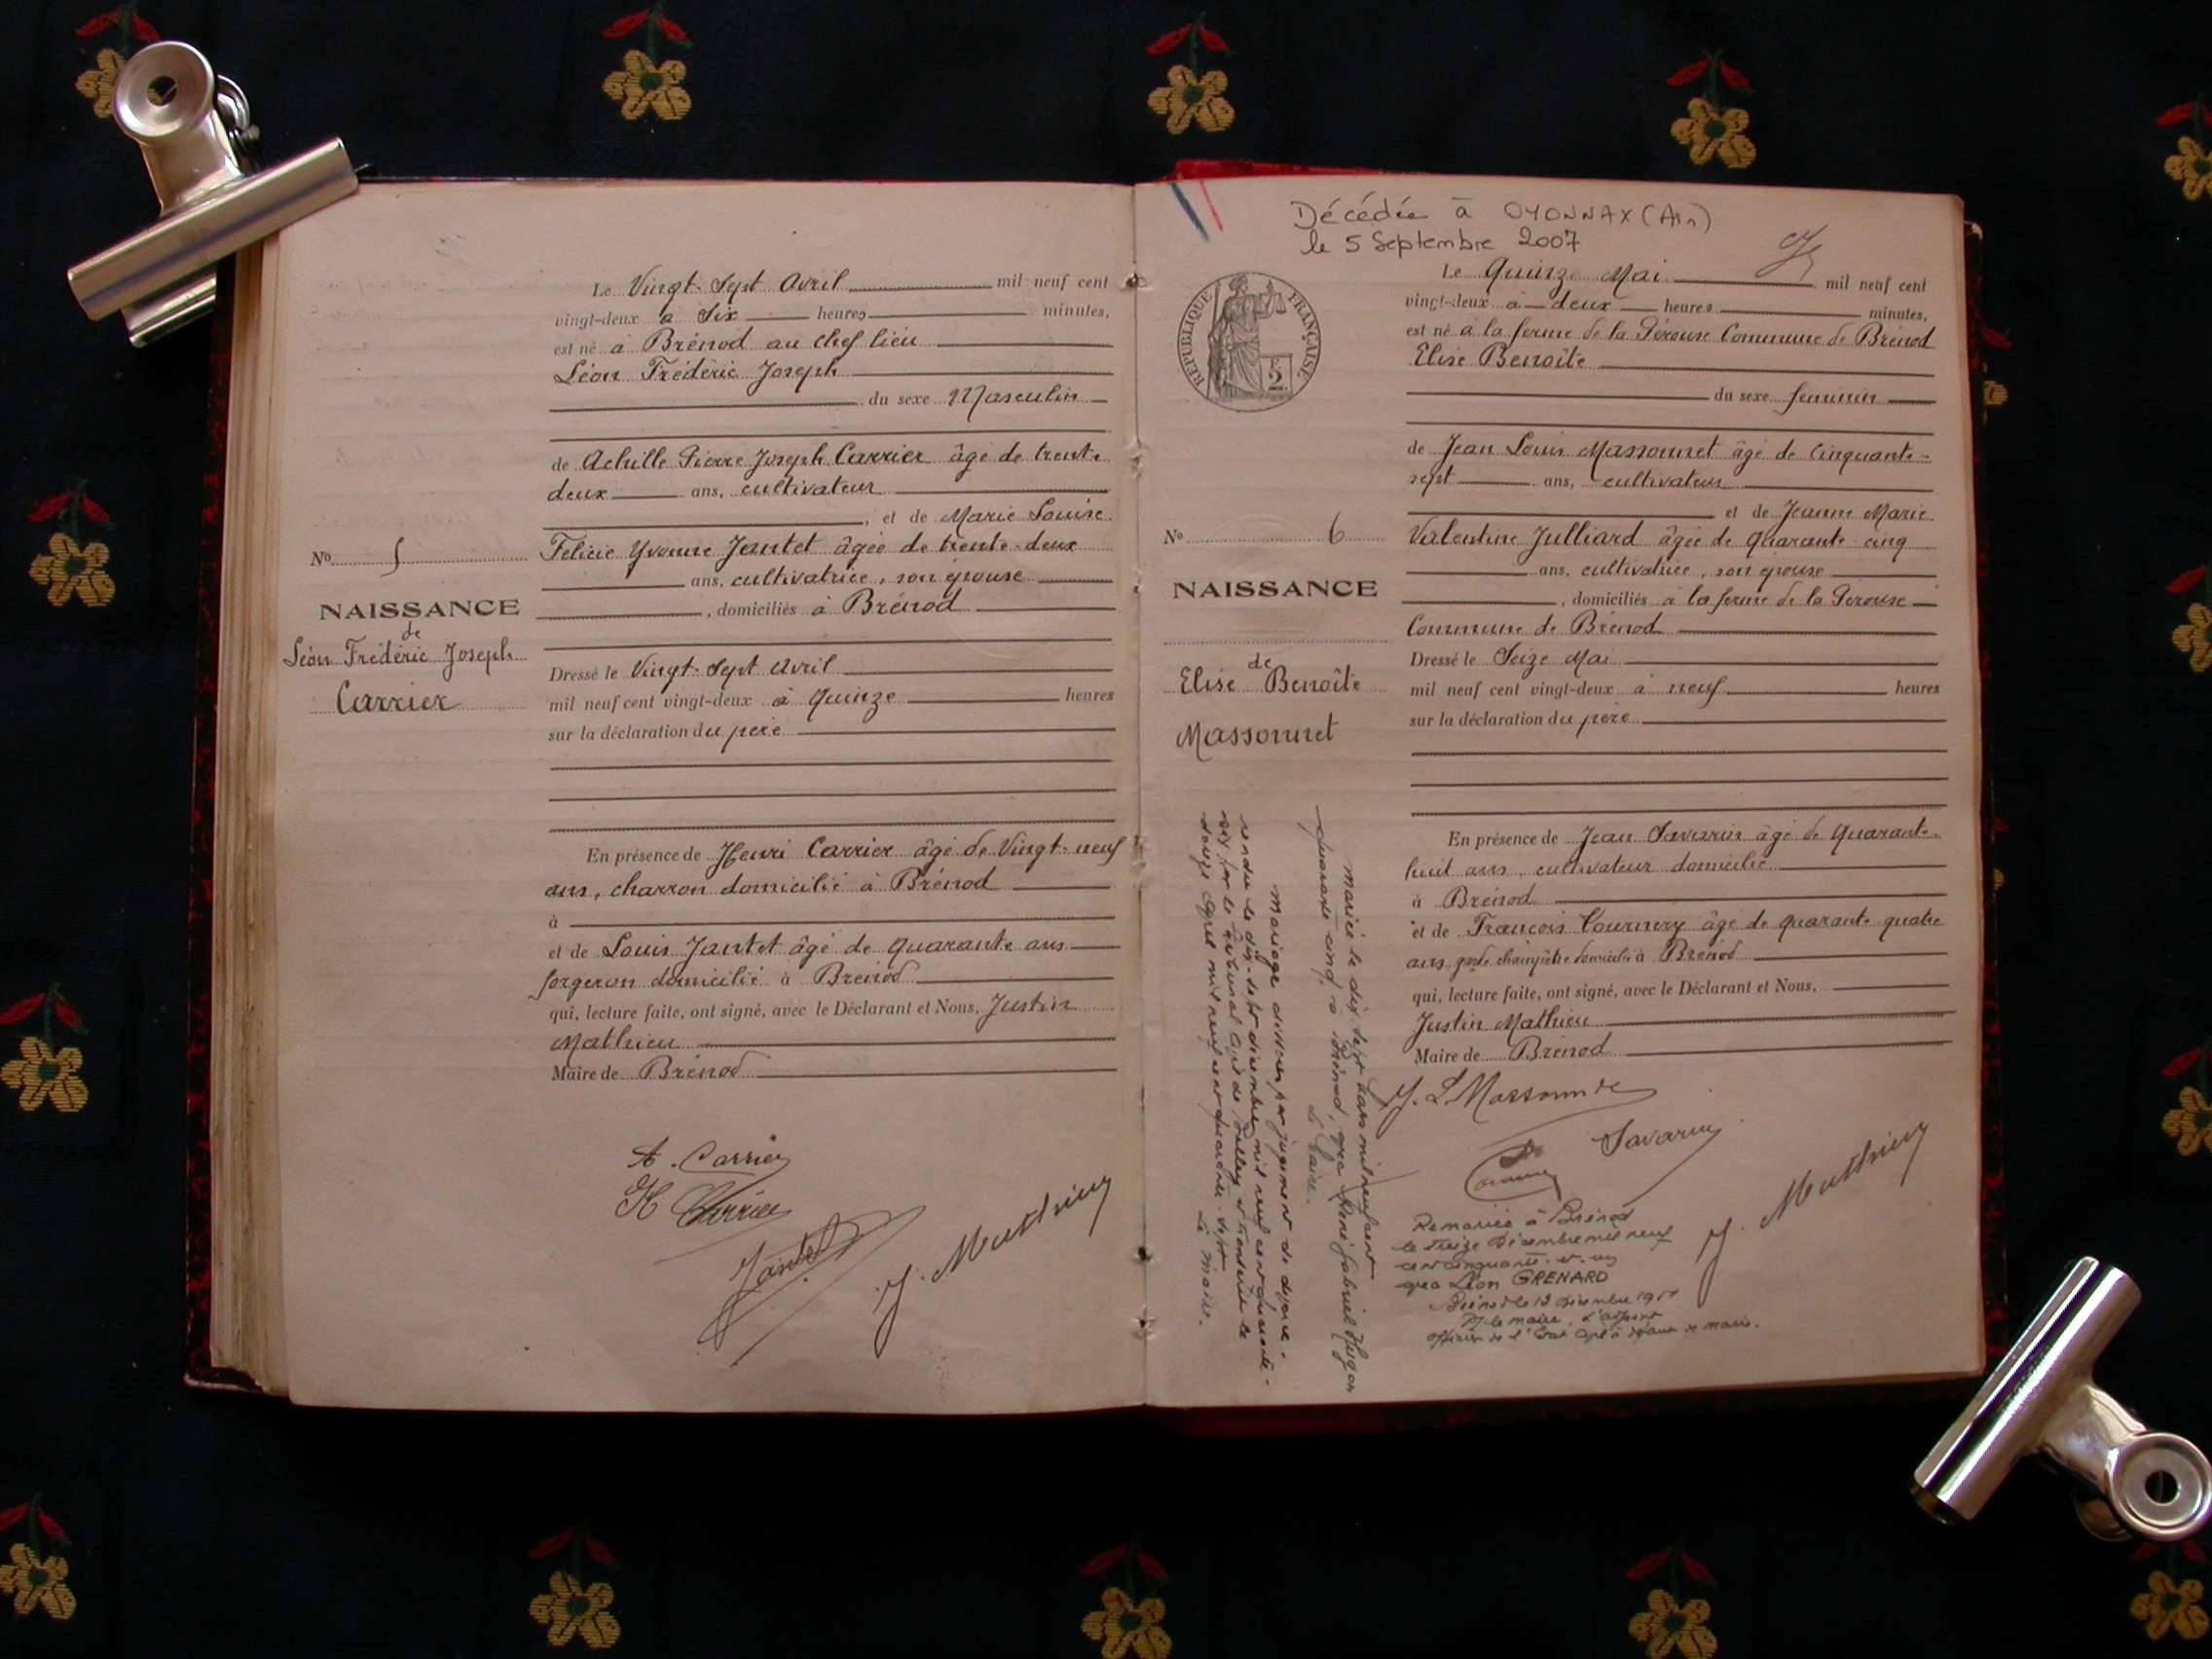 Le Vingt-Sept Avril mil neuf cent
vingt-deux à Six heures minutes,
est né à Brénod au chef lieu
Léon Frédéric Joseph
du sexe Masculin
de Achille Pierre Joseph Carrier âgé de trente
deux ans, cultivateur
, et de Marie Louise
Félicie Yvonne Jantet âgée de trente-deux
ans, cultivatrice, son épouse
, domiciliés à Brénod
Dressé le Vingt-Sept Avril
mil neuf cent vingt-deux à Quinze heures
sur la déclaration du père
En présence de Henri Carrier âgé de Vingt-neuf
ans, charron domicilié à Brénod
à
et de Louis Jantet âgé de quarante ans
forgeron domicilié à Brénod
qui, lecture faite, ont signé, avec le Déclarant et Nous, Justin
Mathieu
Maire de Brénod
No 5
NAISSANCE
de
Léon Frédéric Joseph
Carrier
A. Carrier
H Carrier
Jantet
J. Mathieu
Décédée à OYONNAX (Ain)
le 5 Septembre 2007
RÉPUBLIQUE FRANÇAISE
Le Quinze Mai mil neuf cent
vingt-deux à deux heures minutes,
est né à la ferme de la Pérouse Commune de Brénod
Elise Benoîte
du sexe féminin
de Jean Louis Massonnet âgé de Cinquante-
sept ans, cultivateur
et de Jeanne Marie
Valentine Julliard âgée de quarante cinq
ans, cultivatrice, son épouse
, domiciliés à la ferme de la Pérouse
Commune de Brénod
Dressé le Seize Mai
mil neuf cent vingt-deux à neuf heures
sur la déclaration du père
En présence de Jean Savarin âgé de Quarante-
huit ans, cultivateur domicilié
à Brénod
et de François Cournery âgé de quarante quatre
ans garde champêtre domicilié à Brénod
qui, lecture faite, ont signé, avec le Déclarant et Nous,
Justin Mathieu
Maire de Brénod
No 6
NAISSANCE
de
Elise Benoîte
Massonnet
mariée le dix sept mars mil neuf cent
quarante cinq, à Brénod, avec René Gabriel Hugon
Le Maire.
mariage dissous par jugement de divorce
rendu le dix-sept décembre mil neuf cent quarante-
six par le tribunal civil de Belley et transcrit le
douze avril mil neuf cent quarante-sept
Le maire.
J. L Massonnet
Savarin
J. Mathieu
Remariée à Brénod
le treize Décembre mil neuf
cent cinquante et un
avec Léon GRENARD
Brénod le 13 Décembre 1951